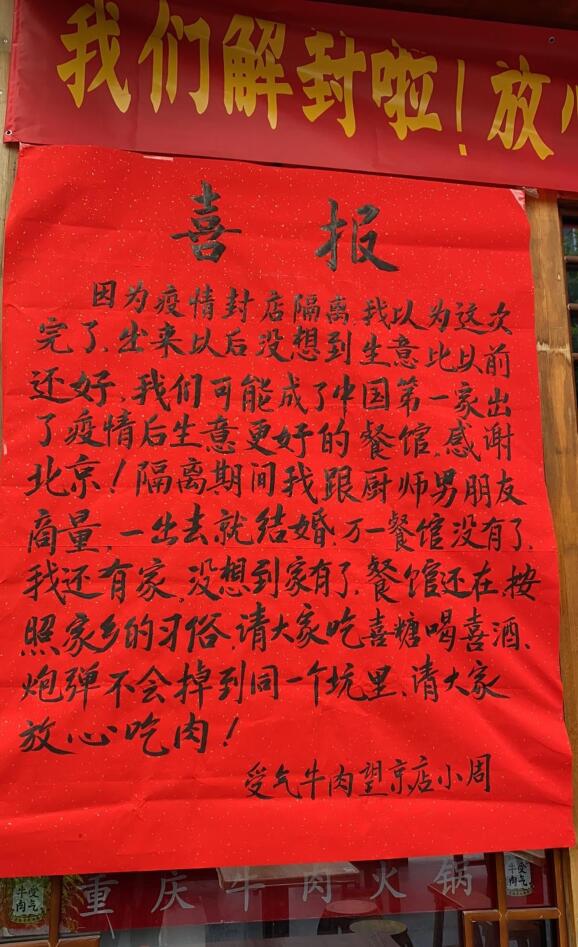 我们解封啦！放
喜报
因为疫情封店隔离，我以为这次
完了，出来以后没想到生意比以前
还好，我们可能成了中国第一家出
了疫情后生意更好的餐馆，感谢
北京！隔离期间我跟厨师男朋友
商量，一出去就结婚，万一餐馆没有了，
我还有家，没想到家有了，餐馆还在，按
照家乡的习俗，请大家吃喜糖喝喜酒、
炮弹不会掉到同一个坑里，请大家
放心吃肉！
受气牛肉望京店小周
受气
牛肉
重庆牛肉火锅
受气
牛肉